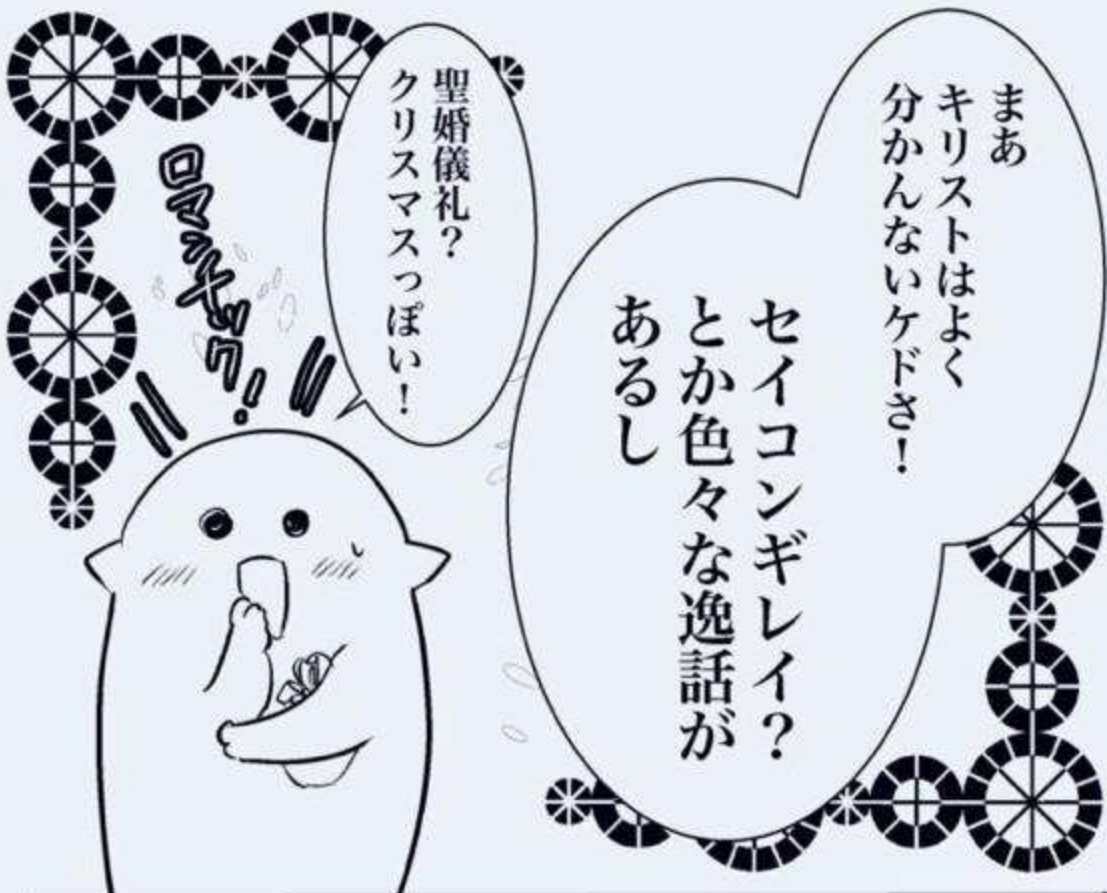 まあ
キリストはよく
分かんないケドさ！
セイコンギレイ？
とか色々な逸話が
あるし
聖婚儀礼？
クリスマスっぽい！
ロマンチック！